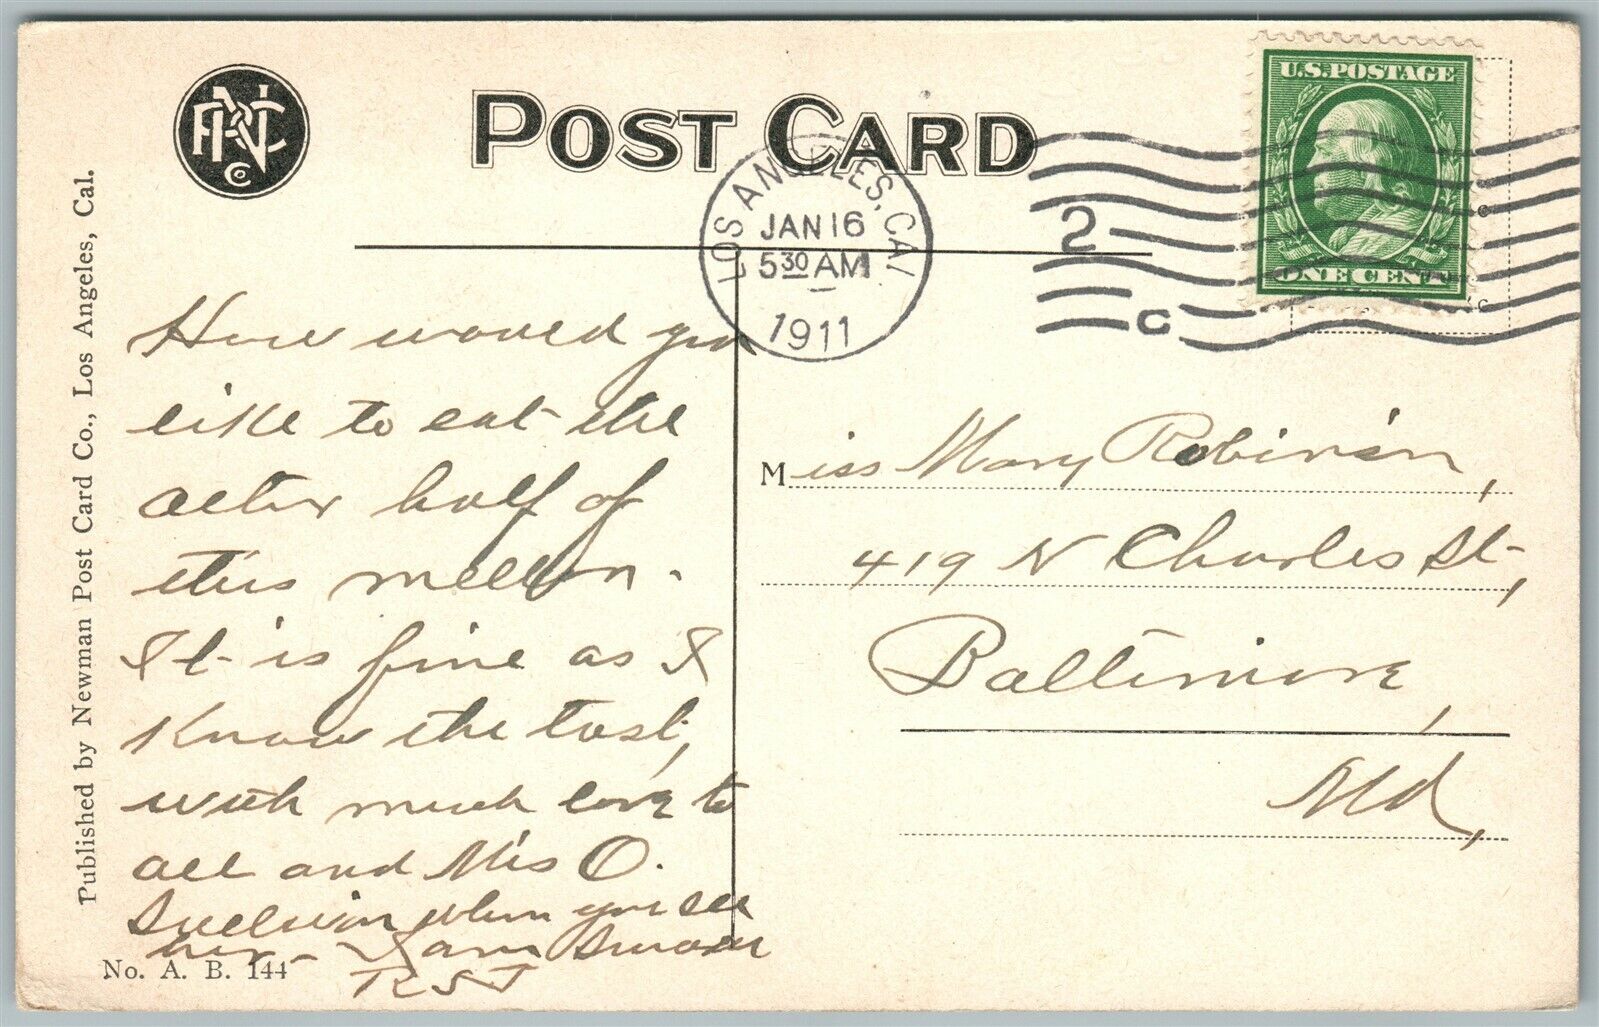 POST CARD
U.S.POSTAGE
ONE CENT
LOS ANGELES, CAL
JAN 16
5 30 AM
1911
2
C
Published by Newman Post Card Co., Los Angeles, Cal.
How would you
like to eat the
other half of
this mellon.
It is fine as I
know the tast,
with much love to
all and Mis O.
Sullivan when you see
her - I am
R S T
No. A. B. 144
Miss Mary Robinson,
419 N Charles St,
Baltimore,
Md,